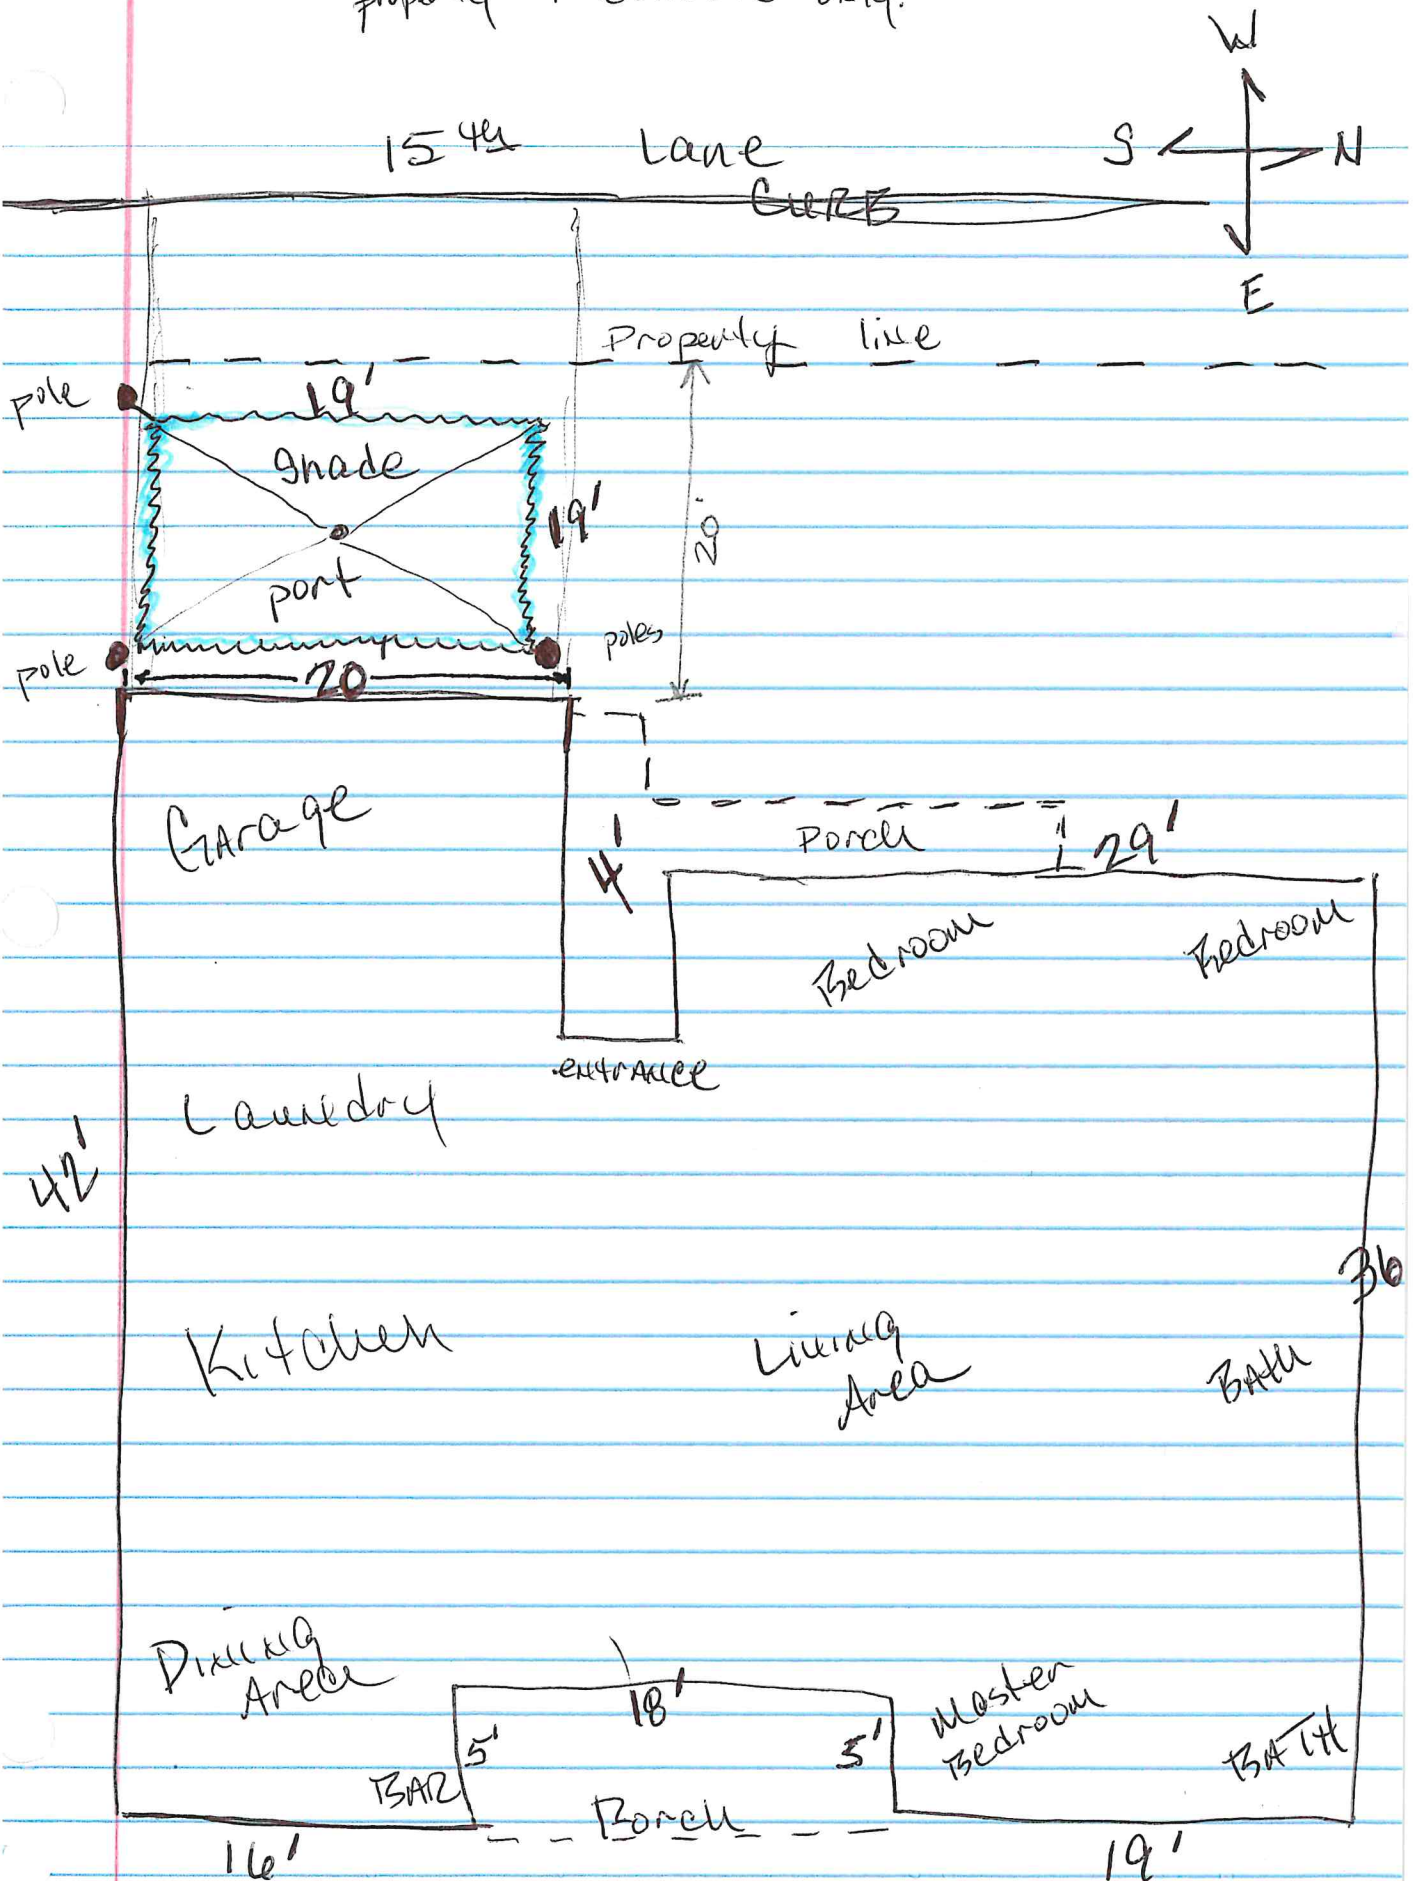 property
W
15th Lane
S N
CURB
E
Property line
pole
19'
shade
19'
20'
port
poles
pole
20
Garage
4'
Porch
29'
Bedroom
Bedroom
entrance
Laundry
42'
36
Kitchen
Living
Area
Bath
Dining
Area
18'
Master
Bedroom
5'
5'
BATH
BAR
Porch
16'
19'